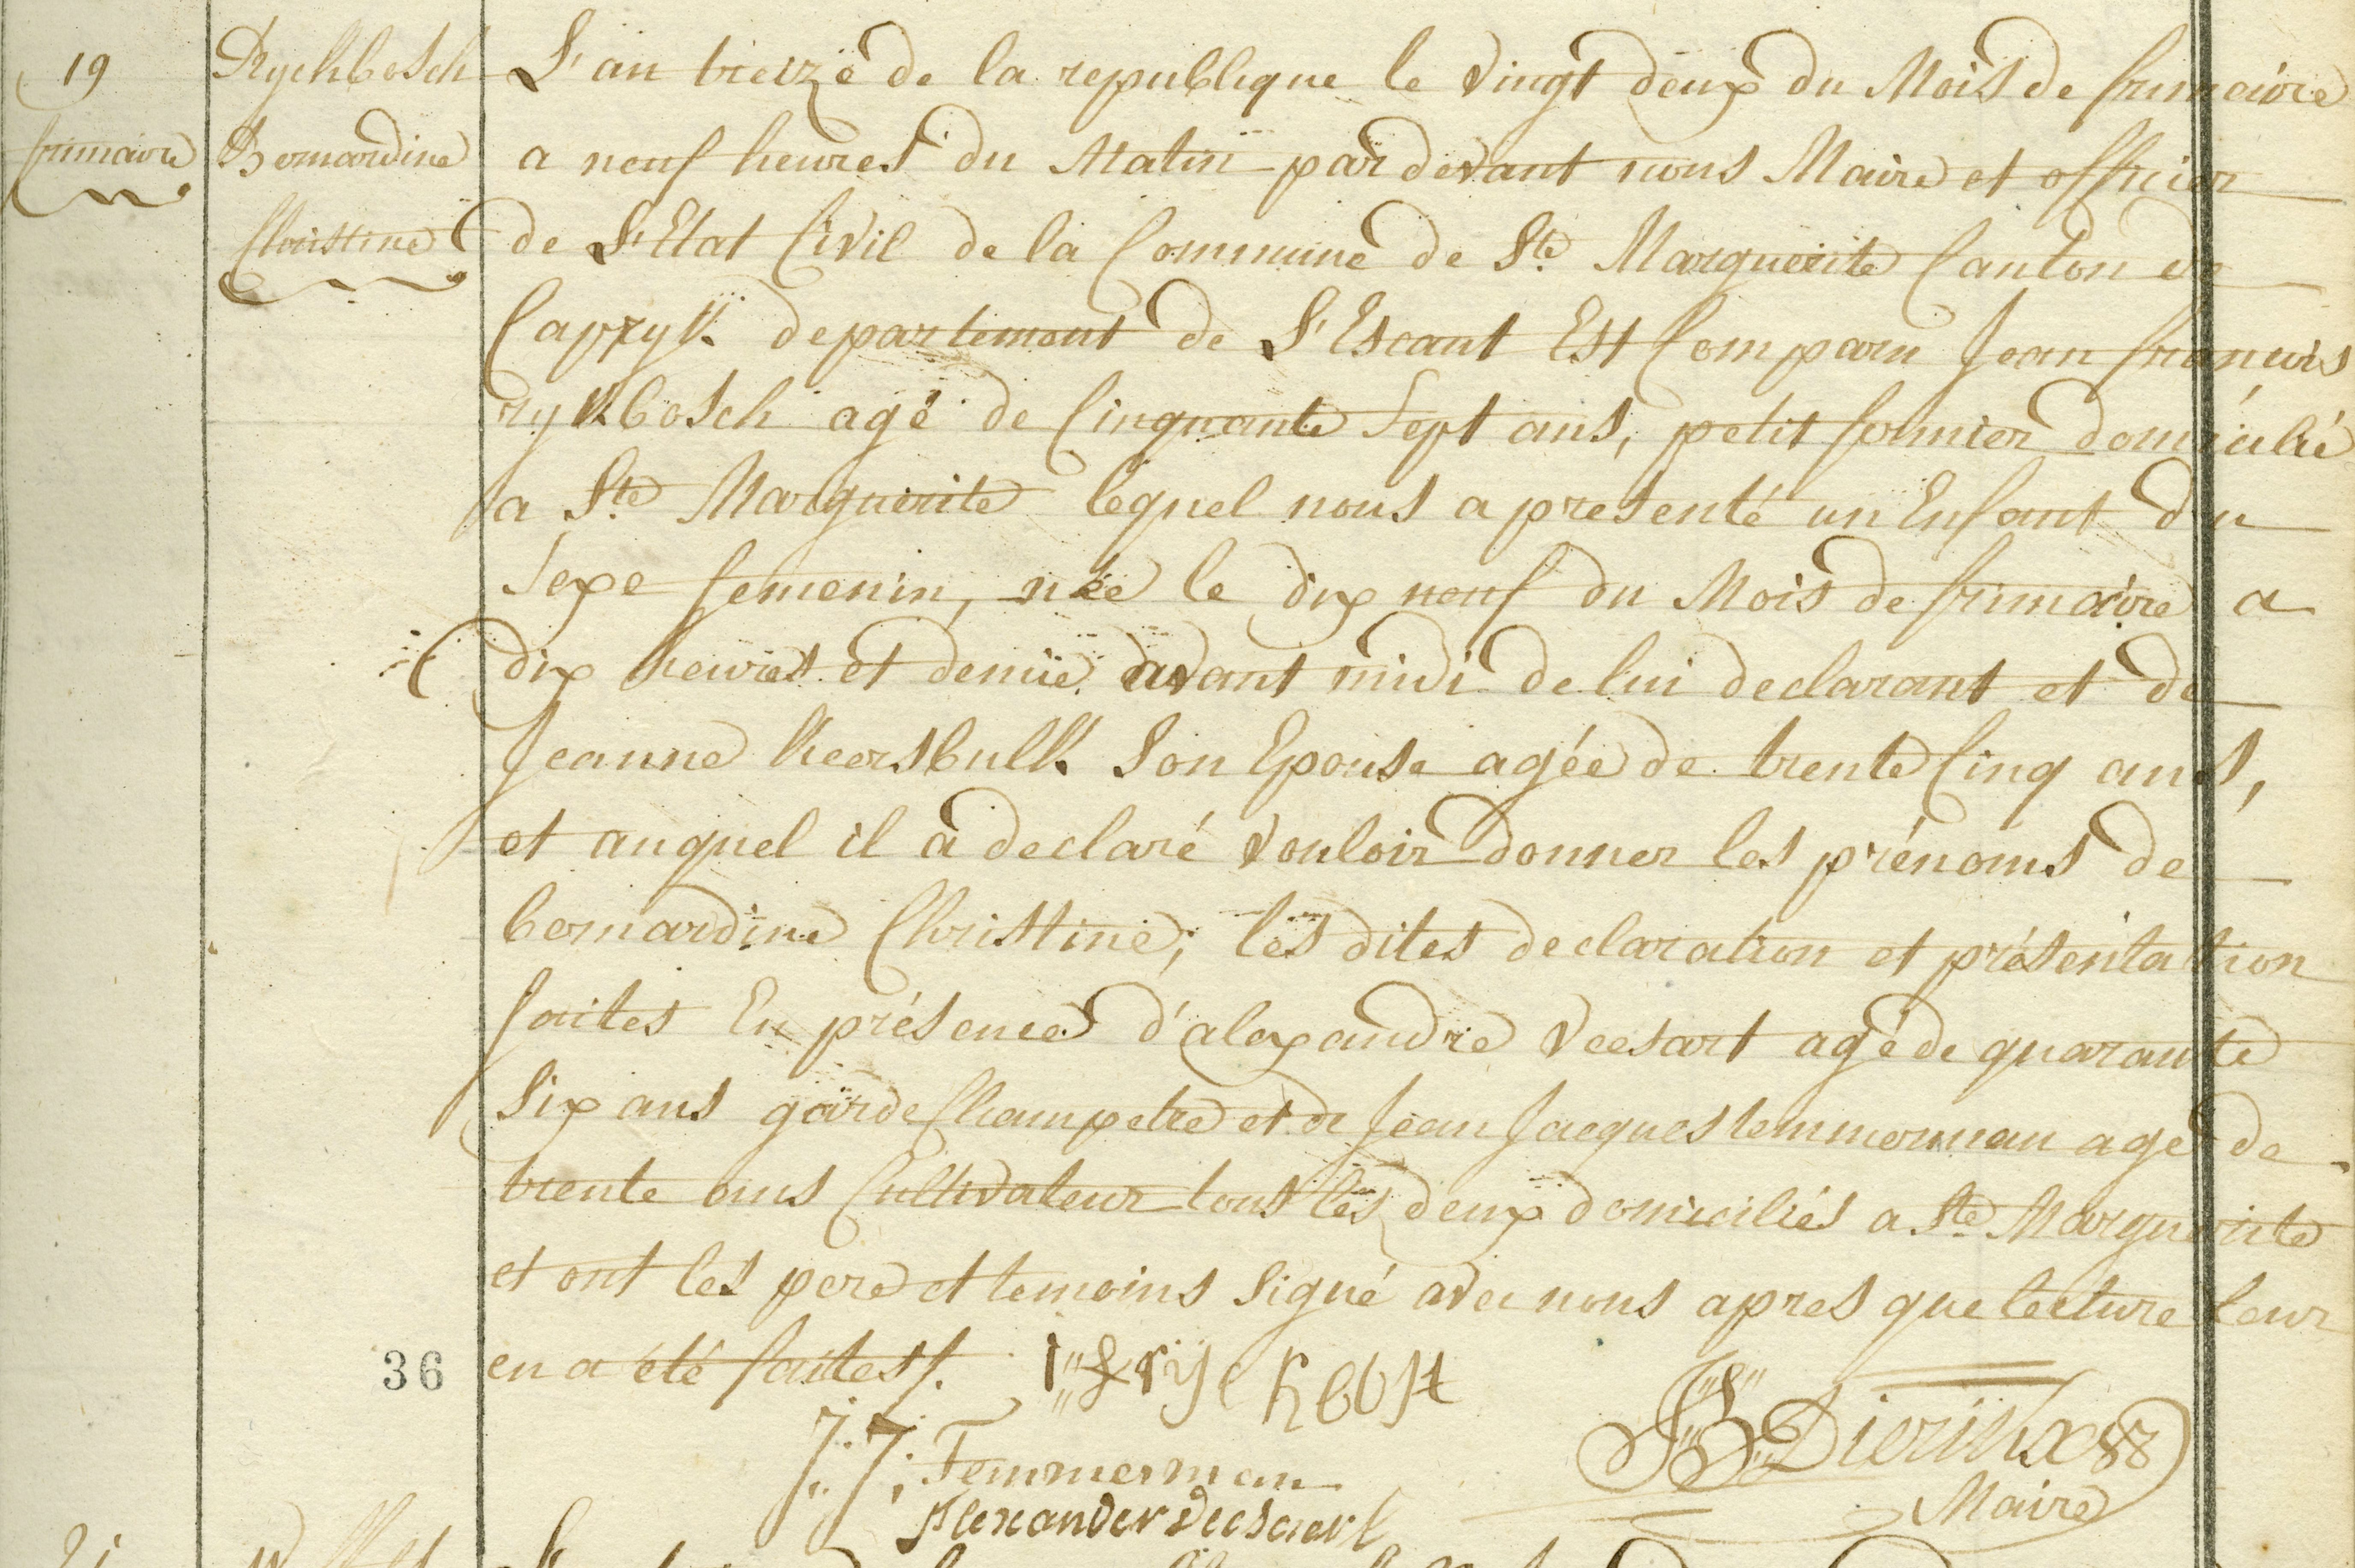 19
frimaire
Rychbosch
Bernardine
Christine
L'an treize de la republique le vingt deux du Mois de frimaire
a neuf heures du Matin par devant nous Maire et officier
de L'Etat Civil de la Commune de Ste Marguerite Canton de
Capryk departement de L'Escaut Est Comparu Jean francois
rykbosch agé de Cinquante Sept ans, petit fermier domicilié
a Ste Marguerite lequel nous a presenté un Enfant du
Sexe femenin, née le dix neuf du Mois de frimaire a
dix heures et demie avant midi de lui declarant et de
Jeanne keersbulk Son Epouse agée de trente Cinq ans,
et auquel il a declaré vouloir donner les prénoms de
bernardine Christine, les dites declaration et présentation
faites En présence d'alexandre veesart agé de quarante
Six ans garde Champetre et de Jean Jacques temmerman agé de
trente ans Cultivateur tous les deux domiciliés a Ste Marguerite
et ont les pere et temoins Signé avec nous apres que lecture leur
en a été faites/.
36
J: J: Temmerman
Dierikx
Maire
Alexander